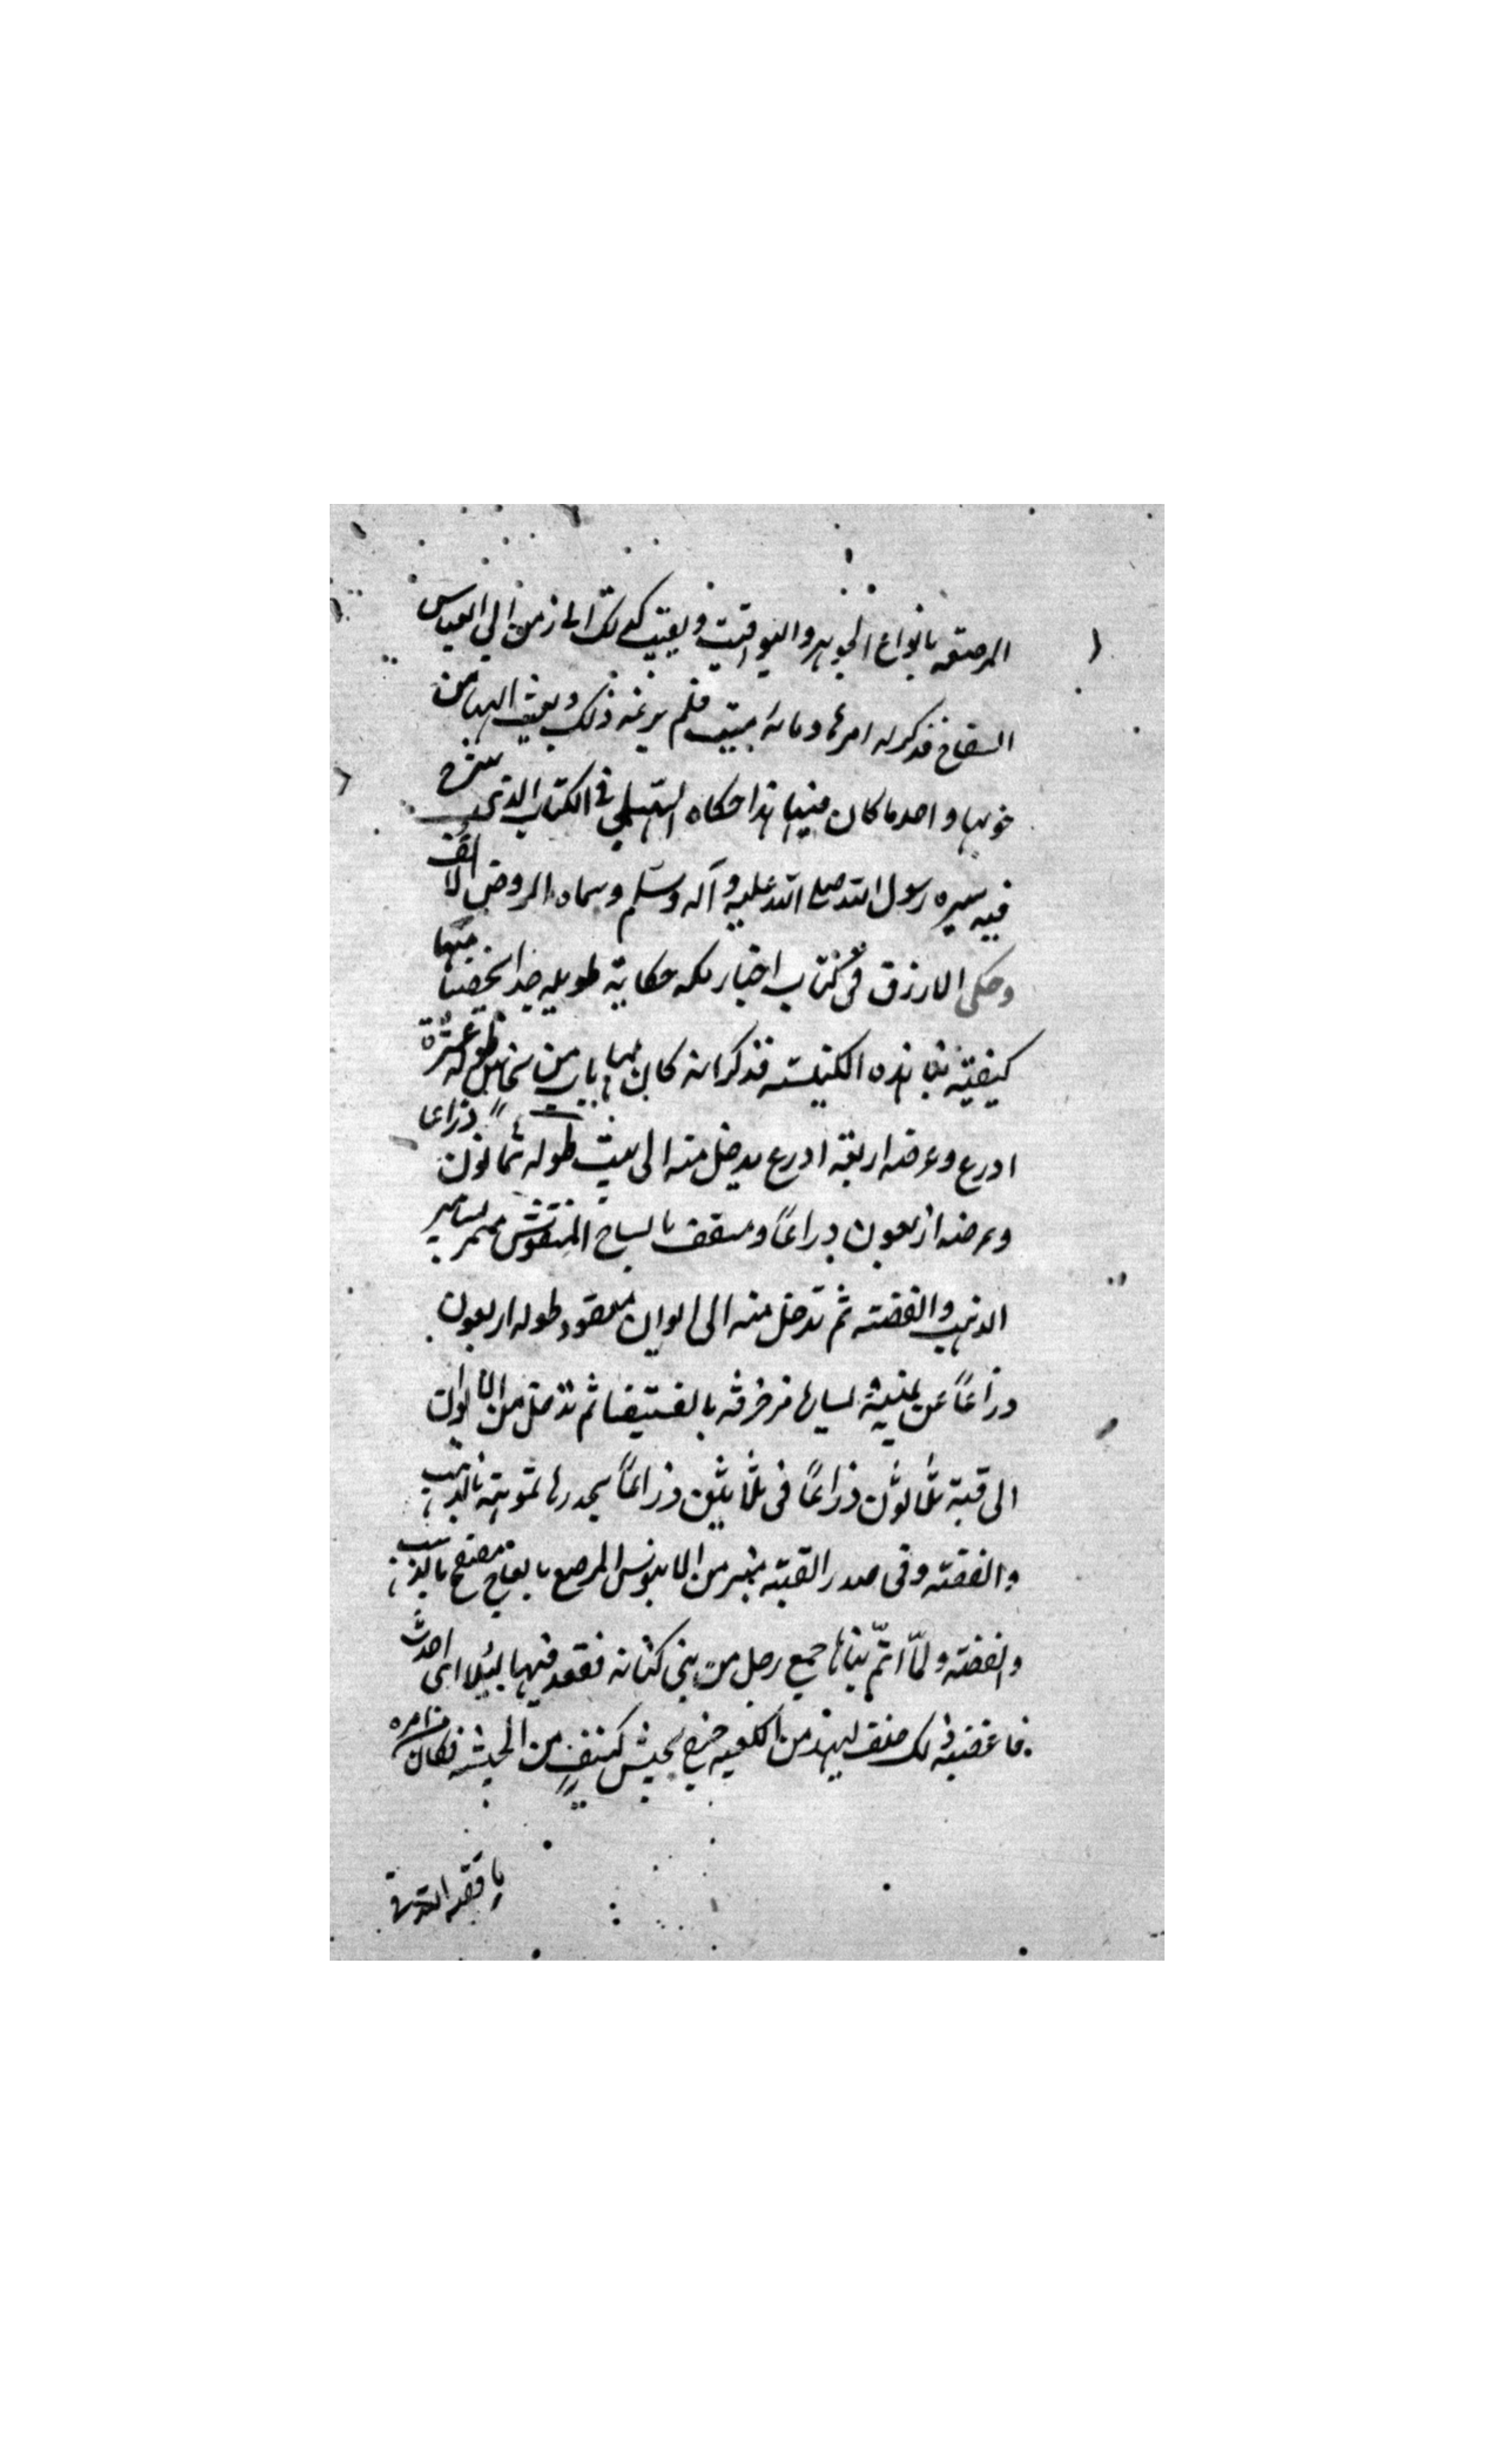 المرصعه بانواع الجوهر واليواقيت وبقيت كذلك الى زمن ابي العباس
السفاح فذكر له امرها وما بها يبيت فلم يرعه ذلك وبعث اليها من
خربها واخذ ما كان فيها هذا حكاه السهيلي في الكتاب الذي شرح
فيه سيره رسول الله صلى الله عليه وآله وسلم وسماه الروض الانف
وحكى الازرق في كتاب اخبار مكه حكاية طويله جدا لخصنا منها
كيفية بنا هذه الكنيسه فذكر انه كان لها باب من نحاس طوله عشرة
اذرع وعرضه اربعة اذرع يدخل منه الى بيت طوله ثمانون ذراعا
وعرضه اربعون ذراعاً ومسقف بالساج المنقوش مسمر بمسامير
الذهب والفضه ثم تدخل منه الى ايوان معقود طوله اربعون
ذراعاً عن يمينه يسارها مزخرفه بالفسيفسا ثم تدخل من الايوان
الى قبة ثلاثون ذراعاً في ثلاثين ذراعاً بجدرها مموهة بالذهب
والفضه وفى صدر القبة منبر من الابنوس المرصع بالعاج مصفح بالذهب
والفضه ولمّا اتمّ بناها جمع رجل من بني كنانه فقعد فيها ليلا اى احدث
فاغضبه ذلك فحلف ليهدمن الكعبه فخرج بجيش كثيفٍ من الحبشه فكان من امره
ما قصه الله تعالى